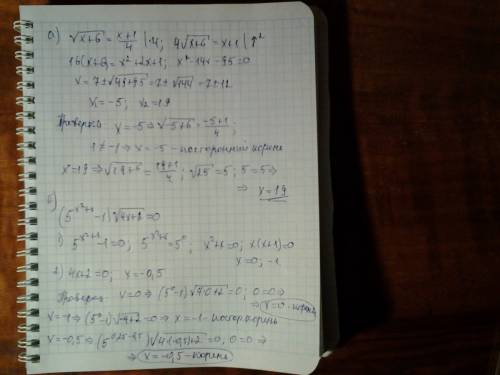 а) √x+6 = x+1/4 |·4; 4√x+6 = x+1 |↑²
16(x+6) = x²+2x+1; x²-14x-95=0
x = 7±√49+95 = 7±√144 = 7±12
x₁=-5; x₂=19
Проверка: x=-5 ⇒ √-5+6 = -5+1/4;
1≠-1 ⇒ x=-5 - посторонний корень
x=19 ⇒ √19+6 = 19+1/4; √25=5; 5=5 ⇒
⇒ x=19
б)
(5^(x²+x) -1)√4x+2=0
1) 5^(x²+x) -1=0; 5^(x²+x)=5⁰; x²+x=0; x(x+1)=0
x=0; -1
2) 4x+2=0; x=-0,5
Проверка: x=0 ⇒ (5⁰-1)√4·0+2=0; 0=0 ⇒
⇒ x=0 - корень
x=-1 ⇒ (5⁰-1)√-4+2=0 ⇒ x=-1 - постор. корень
x=-0,5 ⇒ (5^(0,25-0,5) -1)√4·(-0,5)+2=0; 0=0 ⇒
⇒ x=-0,5 - корень